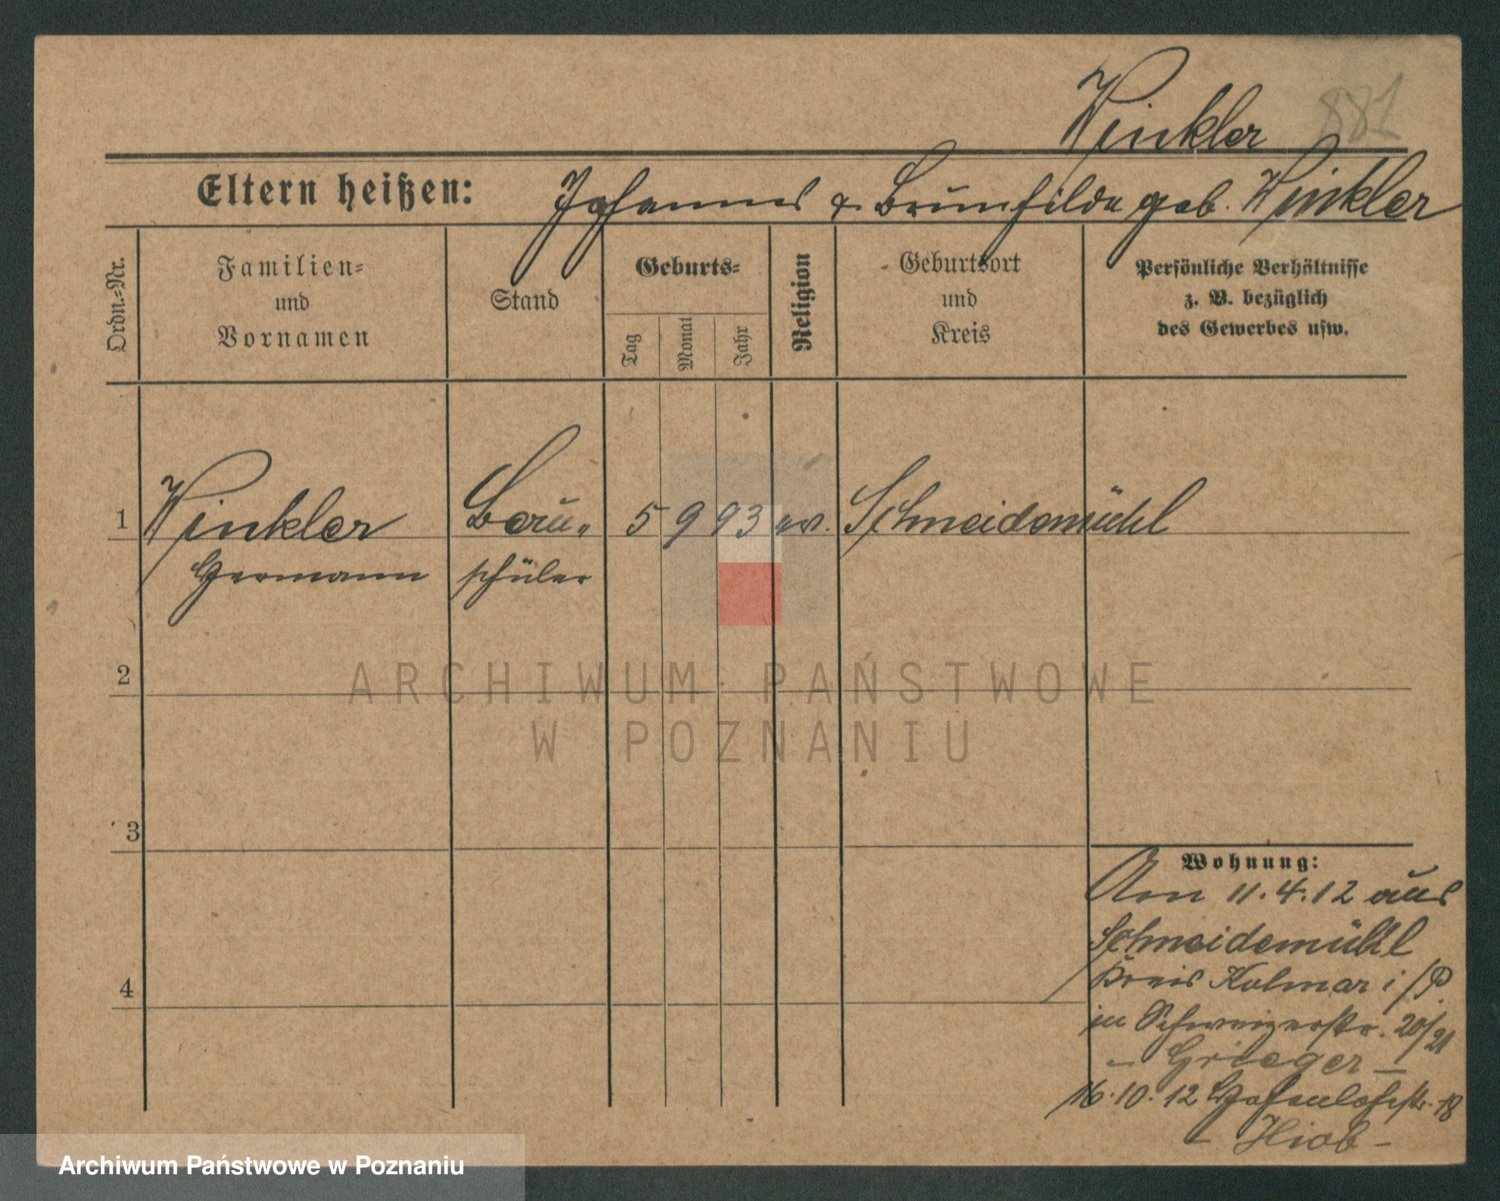 Winkler 881
Eltern heißen: Johannes & Brunhilde geb. Winkler
Ordn.-Nr.
Familien-
und
Vornamen
Stand
Geburts-
Tag
Monat
Jahr
Religion
Geburtsort
und
Kreis
Persönliche Verhältnisse
z. B. bezüglich
des Gewerbes usw.
1 Winkler Bau- 5 9 93 ev. Schneidemühl
Hermann schüler
2
ARCHIWUM PAŃSTWOWE
W POZNANIU
3
Wohnung:
Am 11.4.12 aus
Schneidemühl
4
Kreis Kolmar i/P.
in Schweizerstr. 20/21
- Grieger -
16.10.12 Hohenlohestr. 18
- Hiob -
Archiwum Państwowe w Poznaniu